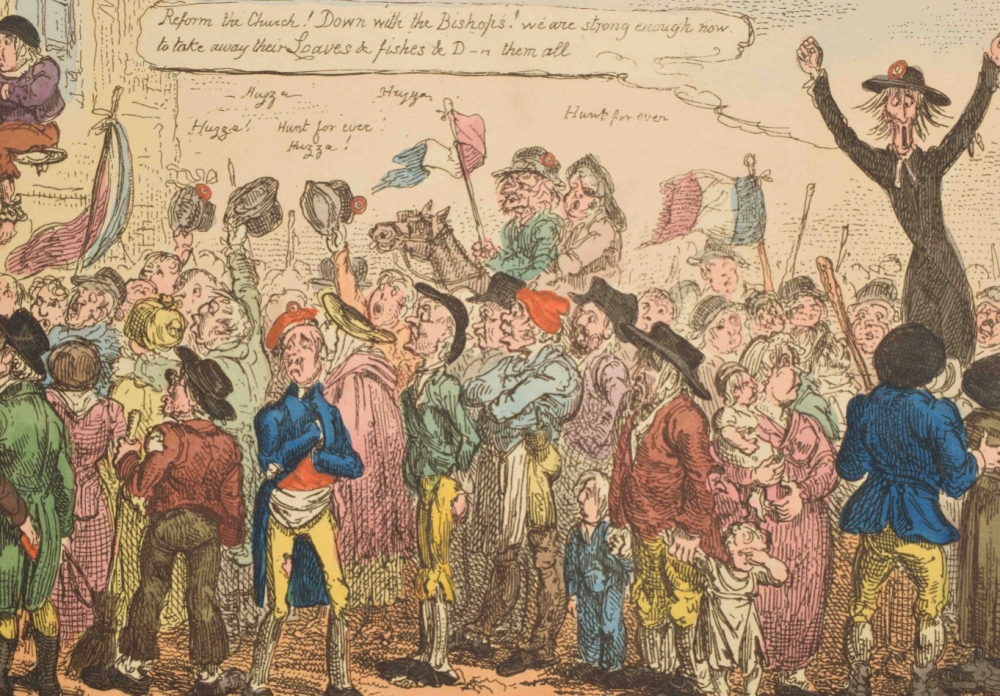 Reform the Church! Down with the Bishops! we are strong enough now.
to take away their Loaves & fishes & D–n them all
Huzza
Huzza
Huzza! Hunt for ever!
Huzza!
Hunt for ever